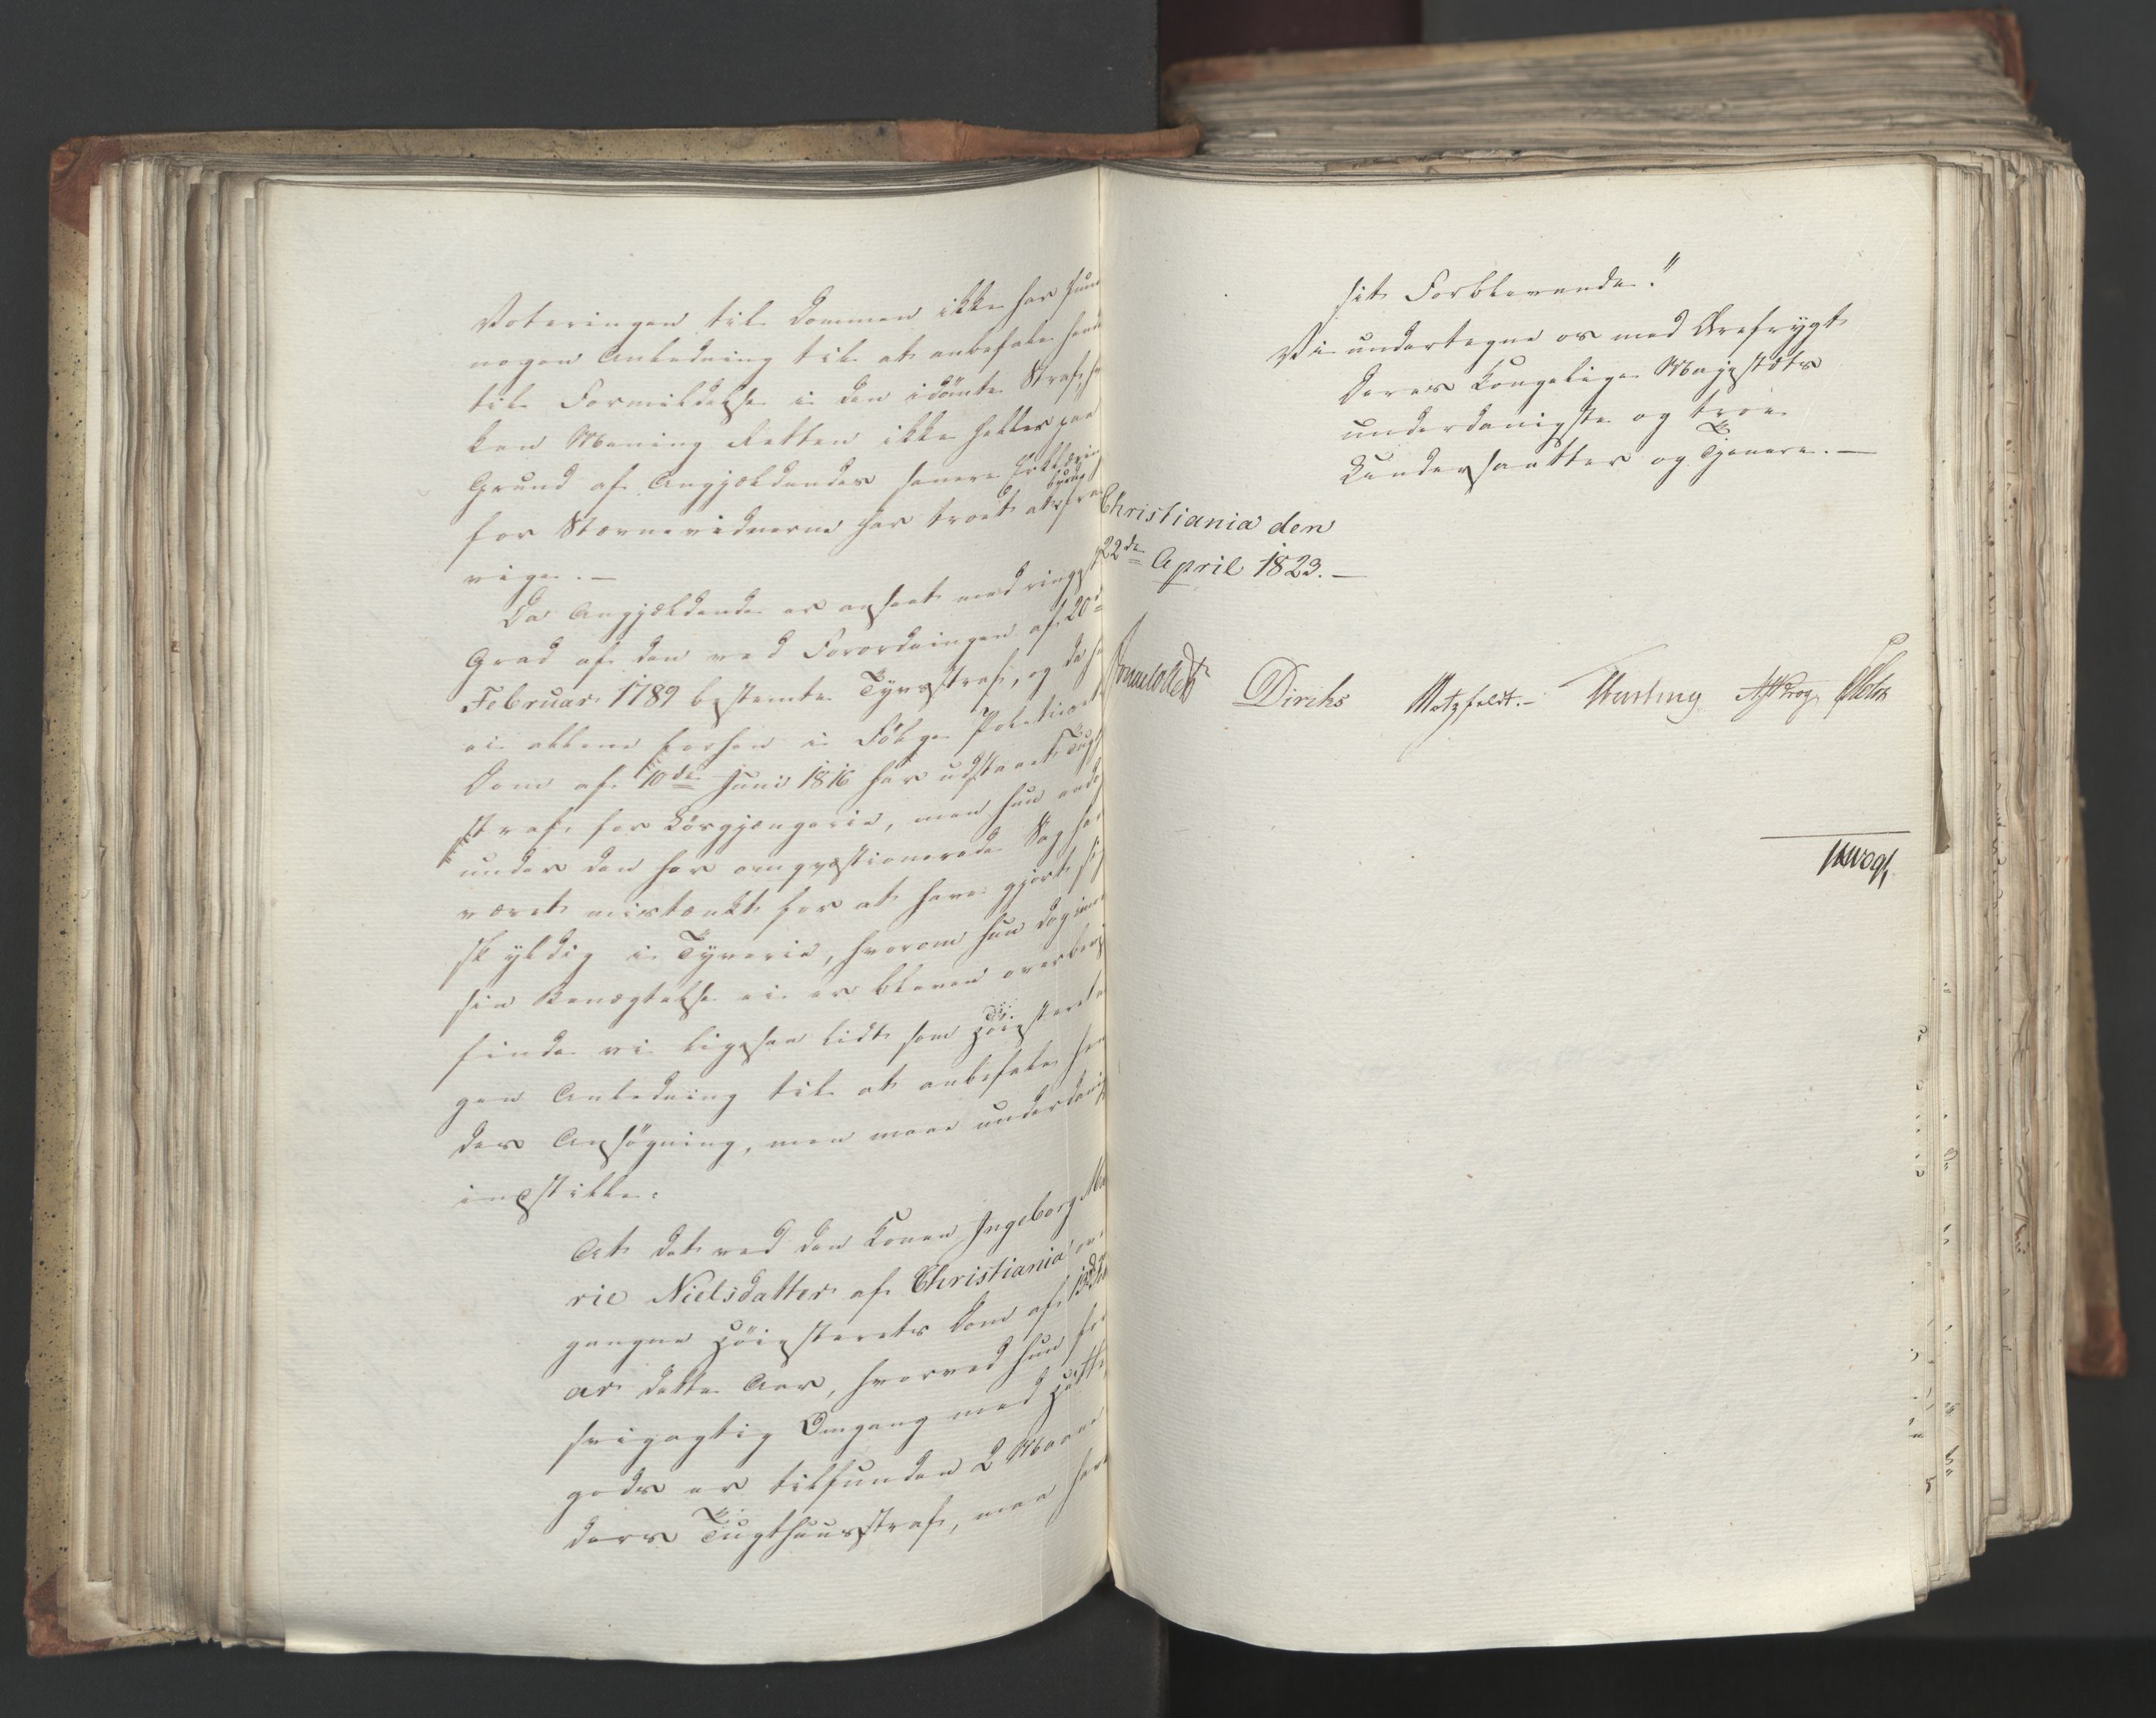 Voteringen til Dommen ikke har fun
nogen Anledning til at anbefale hende
til Formildelse i den idömte Straf, hv
ken Mening Retten ikke heller paa
Grund af Angjældendes senere Erklærin
for Stævnevidnerne har troet at burde fra
vige. —
Da Angjældende er anseet med ringeste
Grad af den ved Forordningen af 20de
Februar 1789 bestemte Tyvsstraf, og da hun
ei allene forhen i Fölge Politierets
Dom af 10de Juni 1816 har udstaaet Tugt
straf for Lösgjængerie, men hun endog
under den her omqvæstionerede Sag har
været mistænkt for at have gjort sig
skyldig i Tyverie, hvorom hun dog imod
sin Benægtelse ei er bleven overbeviist
finde vi ligesaa lidt som Höiesteret no
gen Anledning til at anbefale hen
des Ansögning, men maae underdanigst
indstille:
At det ved den Konen Ingeborg Ma
rie Nielsdatter af Christiania over
gangne Höiesterets Dom af
ar dette Aar, hvorved hun for
svigagtig Omgang med Hitte
gods er tilfunden 2 Maane
ders Tugthuusstraf, maa have
sit Forblivende."
Vi undertegne os med Ærefrygt
Deres Kongelige Majestæts
underdanigste og troe
Undersaatter og Tjenere. —
Christiania den
22de April 1823. —
Diriks Motzfeldt. — Krog